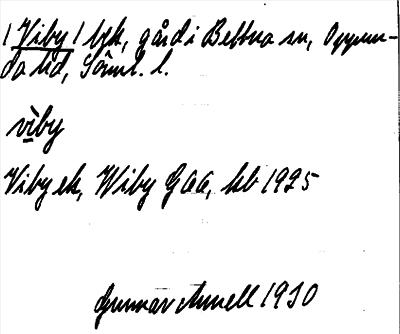 /Viby/ bzk, gård i Bettna sn, Oppun-
da hd, Söml. l.
vìby
Viby ek, Wiby GAA, kb 1925
Gunnar Annell 1930